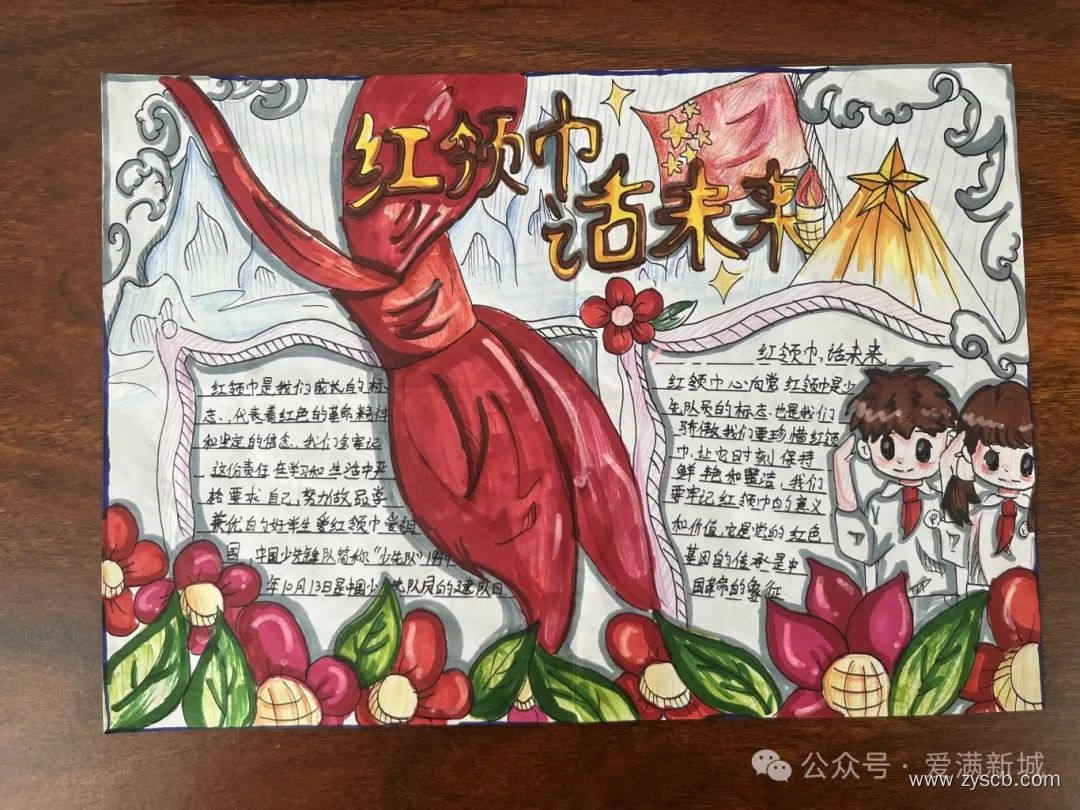 红领巾
话未来
红领巾是我们成长的标
志,代表着红色的革命精神
和坚定的信念。我们会牢记
这份责任在学习和生活中严
格要求自己,努力做品学
兼优的好学生爱红领巾爱祖
国 中国少年先锋队简称“少先队”19
年10月13日是中国少先队员的建队日
红领巾,话未来
红领巾心向党 红领巾是少
先队员的标志也是我们
骄傲我们要珍惜红领
巾,让它时刻保持
鲜艳和整洁,我们
要牢记红领巾的意义
和价值,它是党的红色
基因的传承是中
国革命的象征
公众号·爱满新城
www.zyscb.com